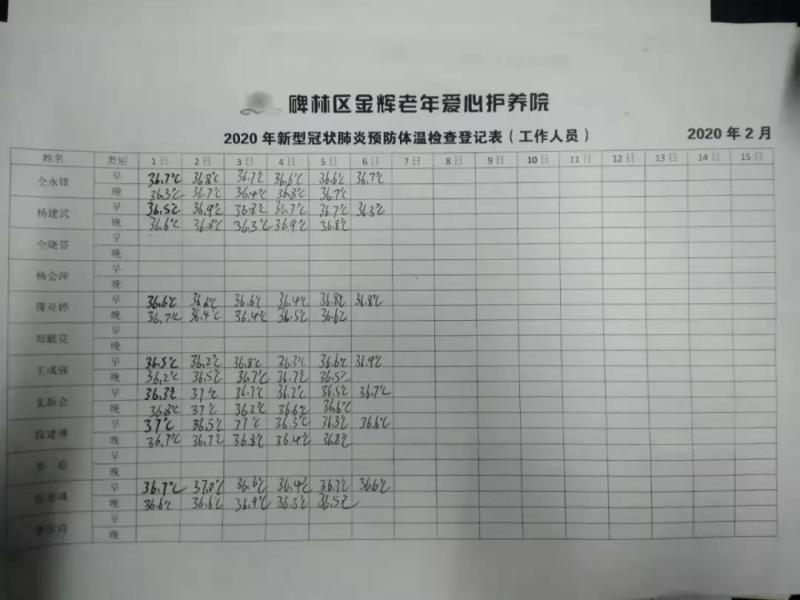 碑林区金辉老年爱心护养院
2020年新型冠状肺炎预防体温检查登记表（工作人员） 2020年2月
姓名 类别 1日 2日 3日 4日 5日 6日 7日 8日 9日 10日 11日 12日 13日 14日 15日
仝永锋 早 36.7℃ 36.8℃ 36.7℃ 36.6℃ 36.6℃ 36.7℃
晚 36.3℃ 36.7℃ 36.4℃ 36.8℃ 36.7℃
杨建武 早 36.5℃ 36.9℃ 36.8℃ 36.7℃ 36.7℃ 36.3℃
晚 36.6℃ 36.8℃ 36.3℃ 36.9℃ 36.8℃
仝晓芬 早
晚
杨会萍 早
晚
早 36.6℃ 36.6℃ 36.6℃ 36.4℃ 36.8℃ 36.8℃
晚 36.7℃ 36.4℃ 36.4℃ 36.5℃ 36.6℃
早
晚
王成强 早 36.5℃ 36.2℃ 36.8℃ 36.3℃ 36.6℃ 36.9℃
晚 36.2℃ 36.5℃ 36.7℃ 36.7℃ 36.5℃
早 36.3℃ 37℃ 36.7℃ 36.2℃ 36.5℃ 36.7℃
晚 36.8℃ 37℃ 36.2℃ 36.6℃ 36.6℃
段建博 早 37℃ 36.5℃ 37℃ 36.5℃ 36.3℃ 36.6℃
晚 36.7℃ 36.7℃ 36.8℃ 36.4℃ 36.8℃
早
晚
早 36.7℃ 37.0℃ 36.6℃ 36.4℃ 36.7℃ 36.6℃
晚 36.6℃ 36.6℃ 36.9℃ 36.5℃ 36.5℃
早
晚